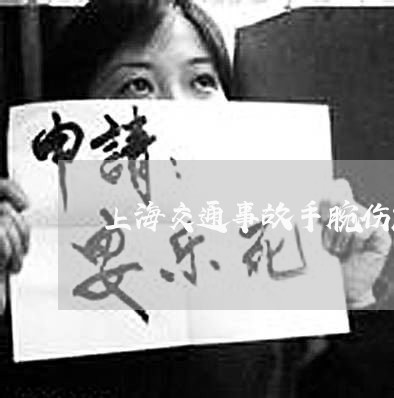 申請:
上海交通事故手腕伤
安乐死